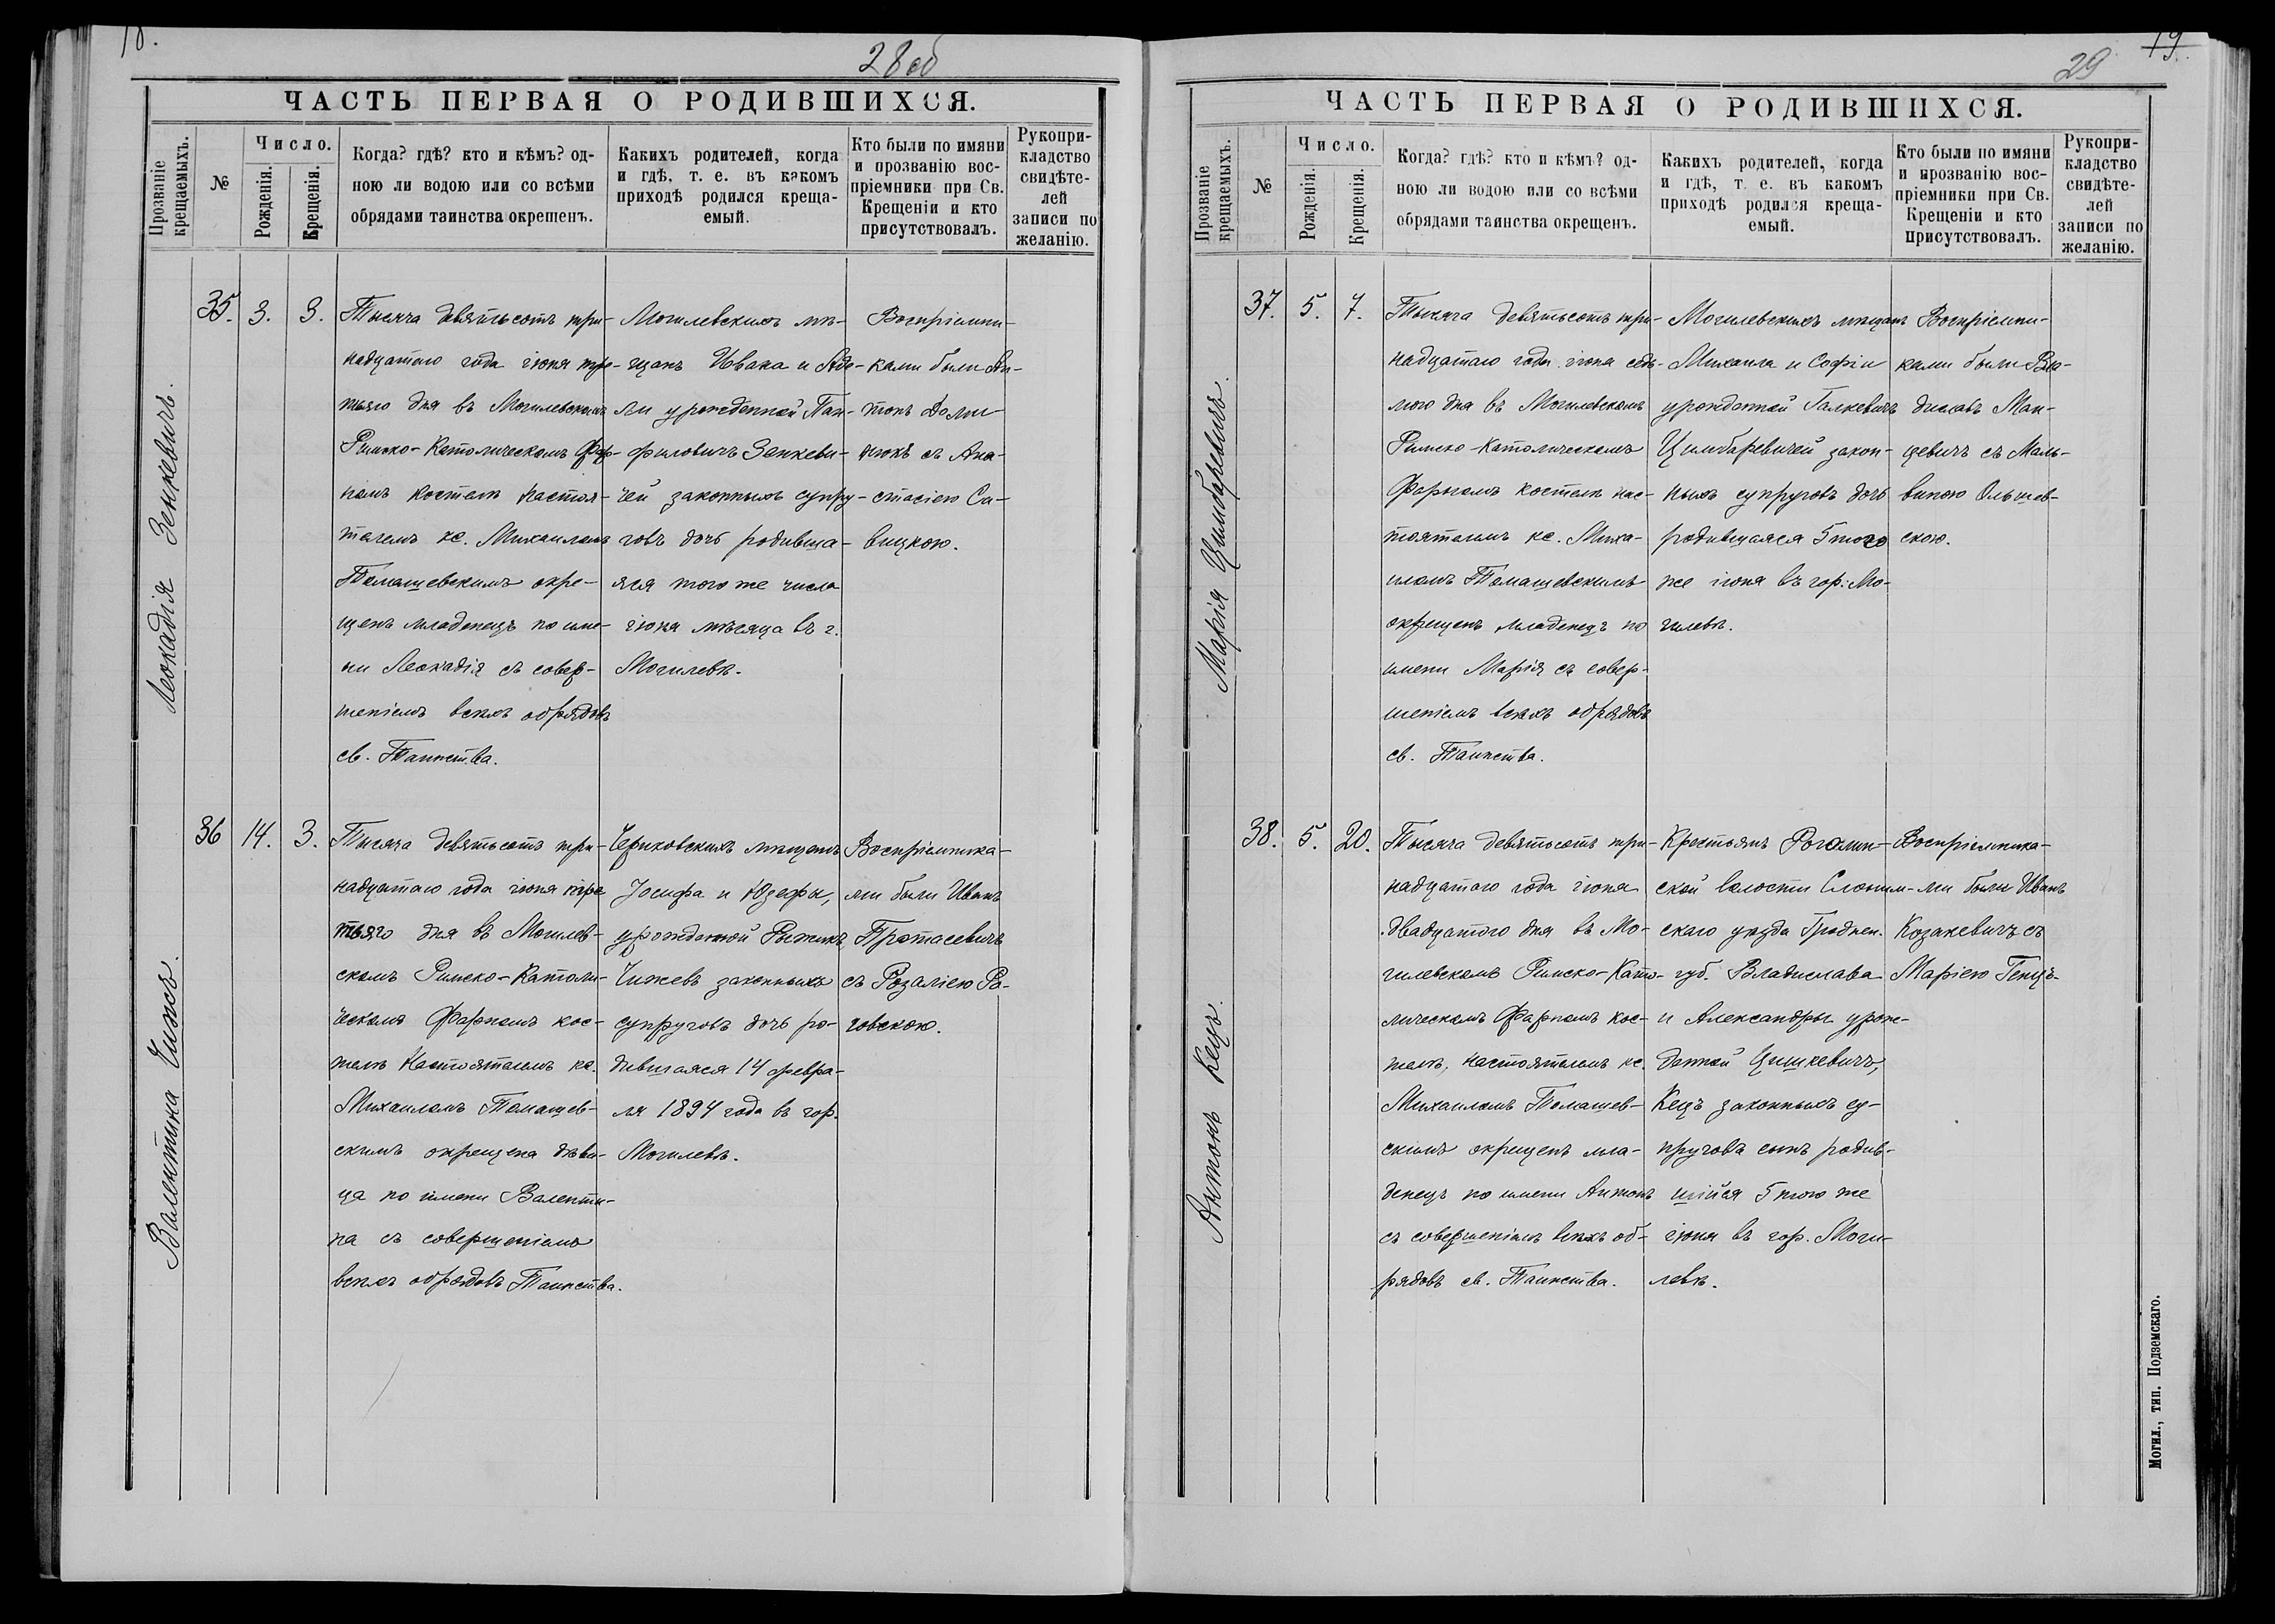 18.
28об
ЧАСТЬ ПЕРВАЯ О РОДИВШИХСЯ.
Прозваніе крещаемыхъ.
№
Число.
Рожденія.
Крещенія.
Когда? гдѣ? кто и кѣмъ? од-
ною ли водою или со всѣми
обрядами таинства окрещенъ.
Какихъ родителей, когда
и гдѣ, т. е. въ какомъ
приходѣ родился креща-
емый.
Кто были по имяни
и прозванію вос-
пріемники при Св.
Крещеніи и кто
присутствовалъ.
Рукопри-
кладство
свидѣте-
лей
записи по
желанію.
Леокадія Зенкевичъ.
35. 3. 3.
Тысяча девятьсотъ три-
надцатаго года іюня тре-
тьяго дня въ Могилевскомъ
Римско-Католическомъ Фар-
номъ костелѣ Настоя-
телемъ кс. Михаиломъ
Томашевскимъ окре-
щенъ младенецъ по име-
ни Леокадія съ совер-
шеніемъ всѣхъ обрядовъ
св. Таинства.
Могилевскихъ мѣ-
щанъ Ивана и Аде-
ли урожденной Пан-
филовичъ Зенкеви-
чей законныхъ супру-
говъ дочь родивша-
яся того же числа
іюня мѣсяца въ г.
Могилевѣ.
Воспріемни-
ками были Ан-
тонъ
съ Ана-
стасіею Са-
вицкою.
Валентина Чижъ.
36 14. 3.
Тысяча девятьсотъ три-
надцатаго года іюня тре
тьяго дня въ Могилев-
скомъ Римско-Католи-
ческомъ Фарномъ кос-
телѣ Настоятелемъ кс.
Михаиломъ Томашев-
скимъ окрещена дѣви-
ца по имени Валенти-
на съ совершеніемъ
всѣхъ обрядовъ Таинства.
Чериковскихъ мѣщанъ
Іосифа и Юзефы,
урожденной Рыжикъ
Чижевъ законныхъ
супруговъ дочь ро-
дившаяся 14 февра-
ля 1894 года въ гор.
Могилевѣ.
Воспріемника-
ми были Иванъ
Протасевичъ
съ Розаліею Ра-
говскою.
29
19.
ЧАСТЬ ПЕРВАЯ О РОДИВШИХСЯ.
Прозваніе крещаемыхъ.
№
Число.
Рожденія.
Крещенія.
Когда? гдѣ? кто и кѣмъ? од-
ною ли водою или со всѣми
обрядами таинства окрещенъ.
Какихъ родителей, когда
и гдѣ, т. е. въ какомъ
приходѣ родился креща-
емый.
Кто были по имяни
и прозванію вос-
пріемники при Св.
Крещеніи и кто
присутствовалъ.
Рукопри-
кладство
свидѣте-
лей
записи по
желанію.
Марія Цимбаревичъ.
37. 5. 7.
Тысяча девятьсотъ три-
надцатаго года іюня седь-
мого дня въ Могилевскомъ
Римско-Католическомъ
Фарномъ костелѣ нас-
тоятелемъ кс. Миха-
иломъ Томашевскимъ
окрещенъ младенецъ по
имени Марія съ совер-
шеніемъ всѣхъ обрядовъ
св. Таинства.
Могилевскихъ мѣщанъ
Михаила и Софіи
урожденной Галкевичъ
Цимбаревичей закон-
ныхъ супруговъ дочь
родившаяся 5 того
же іюня въ гор. Мо-
гилевѣ.
Воспріемни-
ками были Вла-
диславъ Ман-
цевичъ съ Маль-
виною Ольшев-
скою.
Антонъ Кецъ.
38. 5. 20.
Тысяча девятьсотъ три-
надцатаго года іюня
двадцатаго дня въ Мо-
гилевскомъ Римско-Като-
лическомъ Фарномъ кос-
телѣ, настоятелемъ кс.
Михаиломъ Томашев-
скимъ окрещенъ мла-
денецъ по имени Антонъ
съ совершеніемъ всѣхъ об-
рядовъ св. Таинства.
Крестьянъ Роготин-
ской волости Слоним-
скаго уѣзда Гроднен.
губ. Владислава
и Александры урож-
денной Цишкевичъ,
Кецъ законныхъ су-
пруговъ сынъ родив-
шійся 5 того же
іюня въ гор. Моги-
левѣ.
Воспріемника-
ми были Иванъ
Козакевичъ съ
Маріею
Могил., тип. Подземскаго.